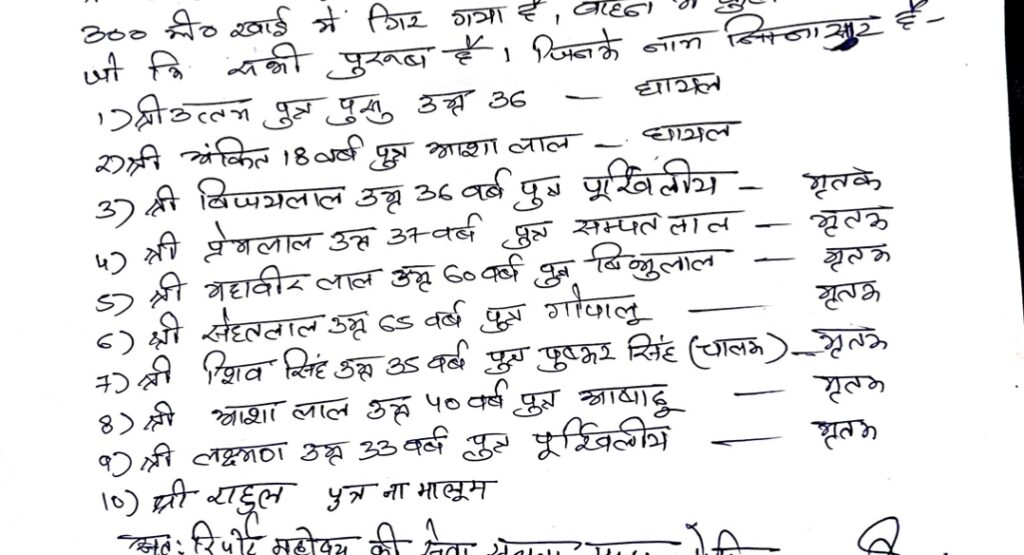 300 मी० खाई में गिर गया है, वाहन में
जो कि सभी पुरूष है। जिनके नाम निम्नासुर है -
1) श्री उत्तम पुत्र पुसु उम्र 36 — घायल
2) श्री अंकित 18 वर्ष पुत्र आशा लाल — घायल
3) श्री विजयलाल उम्र 36 वर्ष पुत्र — मृतके
4) श्री प्रेमलाल उम्र 37 वर्ष पुत्र सम्पत लाल — मृतक
5) श्री महावीर लाल उम्र 60 वर्ष पुत्र — मृतक
6) श्री उम्र 65 वर्ष पुत्र गोपालू — मृतक
7) श्री शिव सिंह उम्र 35 वर्ष पुत्र पुष्कर सिंह (चालक) — मृतक
8) श्री आशा लाल उम्र 40 वर्ष पुत्र आषाढू — मृतक
9) श्री लक्ष्मण उम्र 33 वर्ष पुत्र — मृतक
10) श्री राहुल पुत्र ना मालूम
अत: रिपोर्ट महोदय की सेवा